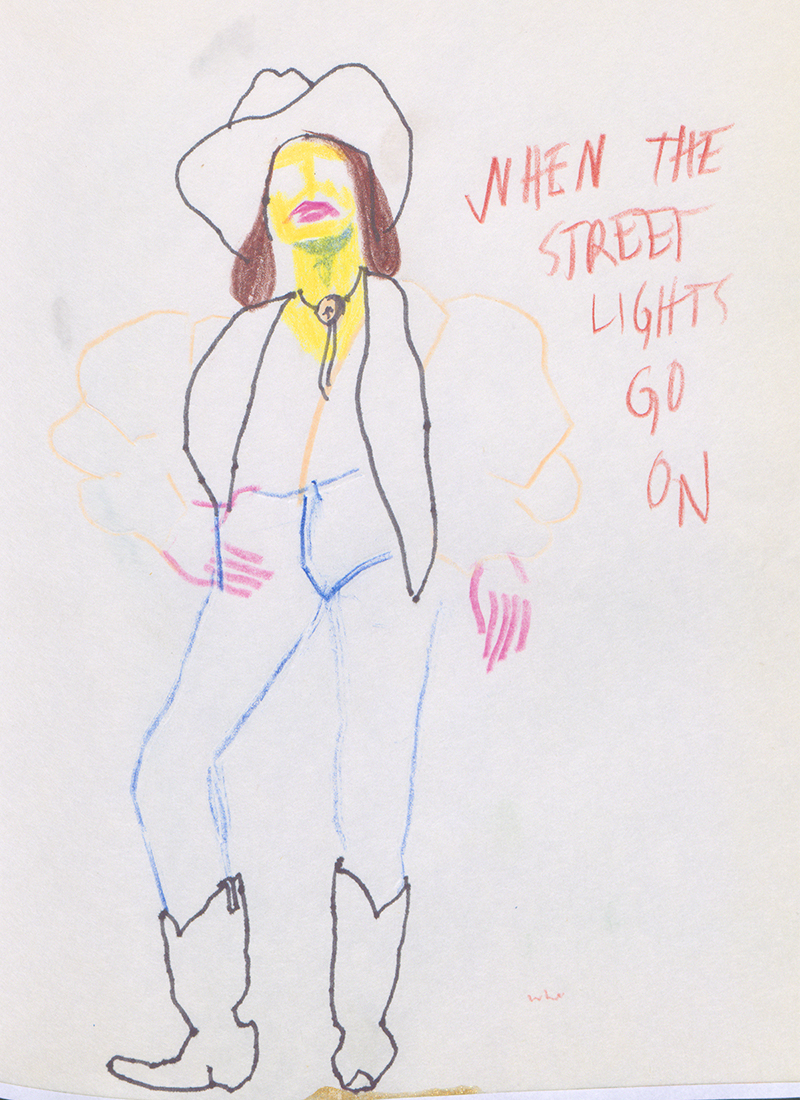 WHEN THE
STREET
LIGHTS
GO
ON